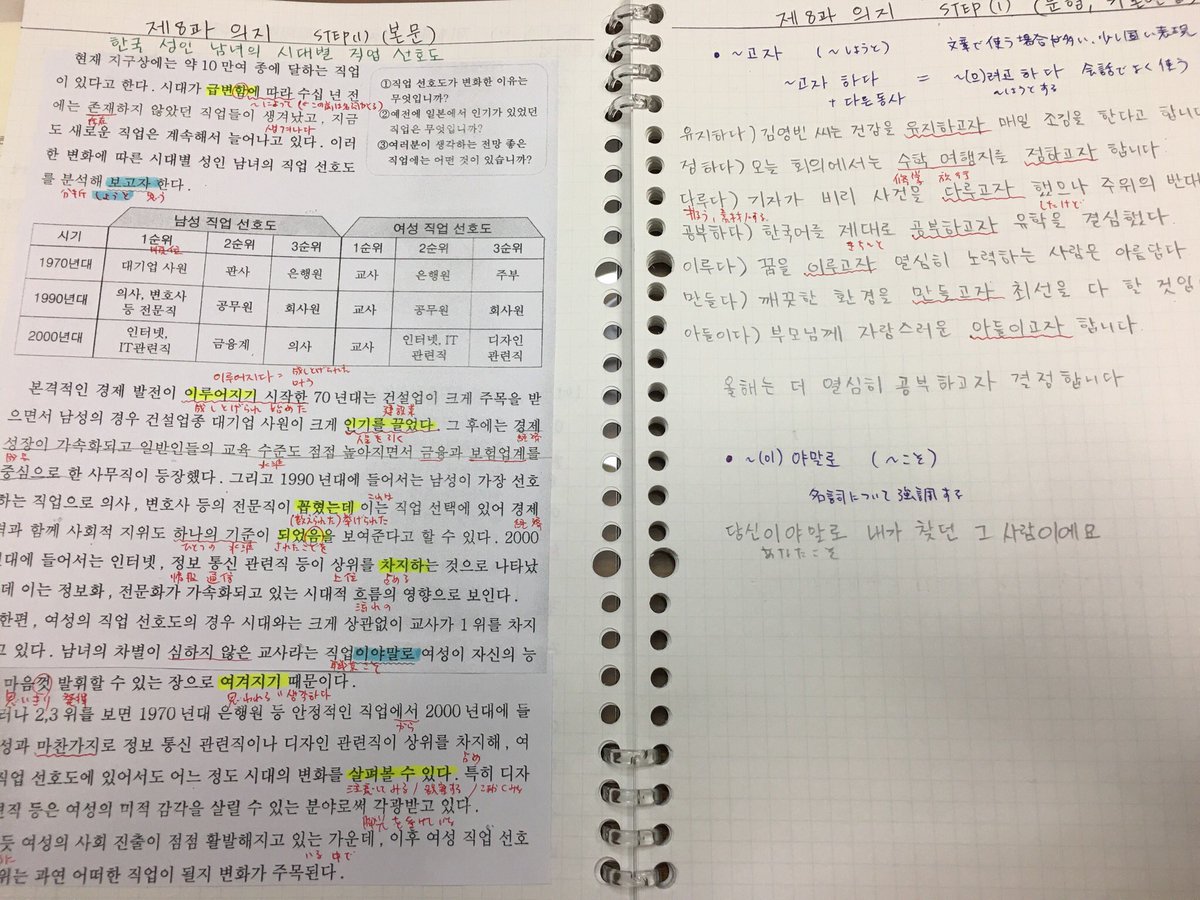 제8과 의지 STEP(1) (본문)
한국 성인 남녀의 시대별 직업 선호도
현재 지구상에는 약 10만여 종에 달하는 직업
이 있다고 한다. 시대가 급변함에 따라 수십 년 전
에는 존재하지 않았던 직업들이 생겨났고, 지금
存在 生겨나다
도 새로운 직업은 계속해서 늘어나고 있다. 이러
한 변화에 따른 시대별 성인 남녀의 직업 선호도
를 분석해 보고자 한다.
分析 しようと 思う
①직업 선호도가 변화한 이유는
무엇입니까?
②예전에 일본에서 인기가 있었던
직업은 무엇입니까?
③여러분이 생각하는 전망 좋은
직업에는 어떤 것이 있습니까?
남성 직업 선호도 여성 직업 선호도
시기 1순위 2순위 3순위 1순위 2순위 3순위
1970년대 대기업 사원 판사 은행원 교사 은행원 주부
1990년대 의사, 변호사 등 전문직 공무원 회사원 교사 공무원 회사원
2000년대 인터넷, IT관련직 금융계 의사 교사 인터넷, IT 관련직 디자인 관련직
이루어지다 = 成しとげられた
叶う
본격적인 경제 발전이 이루어지기 시작한 70년대는 건설업이 크게 주목을 받
成しとげられ 始めた 建設業
으면서 남성의 경우 건설업종 대기업 사원이 크게 인기를 끌었다. 그 후에는 경제
人気を引く 経済
성장이 가속화되고 일반인들의 교육 수준도 점점 높아지면서 금융과 보험업계를
成長 水準
중심으로 한 사무직이 등장했다. 그리고 1990년대에 들어서는 남성이 가장 선호
하는 직업으로 의사, 변호사 등의 전문직이 꼽혔는데 이는 직업 선택에 있어 경제
(数えられた) 挙げられた これは 経済
력과 함께 사회적 지위도 하나의 기준이 되었(음)을 보여준다고 할 수 있다. 2000
ひとつの 水準 されたことを
년대에 들어서는 인터넷, 정보 통신 관련직 등이 상위를 차지하는 것으로 나타났
情報 通信 上位 占める
데 이는 정보화, 전문화가 가속화되고 있는 시대적 흐름의 영향으로 보인다.
流れの
한편, 여성의 직업 선호도의 경우 시대와는 크게 상관없이 교사가 1위를 차지
고 있다. 남녀의 차별이 심하지 않은 교사라는 직업이야말로 여성이 자신의 능
職業こそ
마음껏 발휘할 수 있는 장으로 여겨지기 때문이다.
思いきり 発揮 思われる 생각하다
러나 2,3위를 보면 1970년대 은행원 등 안정적인 직업에서 2000년대에 들
から
성과 마찬가지로 정보 통신 관련직이나 디자인 관련직이 상위를 차지해, 여
占め
직업 선호도에 있어서도 어느 정도 시대의 변화를 살펴볼 수 있다. 특히 디자
련직 등은 여성의 미적 감각을 살릴 수 있는 분야로써 각광받고 있다.
脚光を受けている
듯 여성의 사회 진출이 점점 활발해지고 있는 가운데, 이후 여성 직업 선호
いる中で
위는 과연 어떠한 직업이 될지 변화가 주목된다.
제8과 의지 STEP(1)
• ~고자 (~しようと) 文章で使う場合が多い. 少し固い表現
~고자 하다 = ~(으)려고 하다 会話でよく使う
+ 다른 동사 ~しようとする
유지하다) 김영빈 씨는 건강을 유지하고자 매일 조깅을 한다고 합니
정하다) 오늘 회의에서는 수학 여행지를 정하고자 합니다.
修学 旅行
다루다) 기자가 비리 사건을 다루고자 했으나 주위의 반대
したけど
공부하다) 한국어를 제대로 공부하고자 유학을 결심했다.
きちんと
이루다) 꿈을 이루고자 열심히 노력하는 사람은 아름답다
만들다) 깨끗한 환경을 만들고자 최선을 다 할 것입
아들이다) 부모님께 자랑스러운 아들이고자 합니다.
올해는 더 열심히 공부하고자 결정합니다
• ~(이)야말로 (~こそ)
名詞について強調する
당신이야말로 내가 찾던 그 사람이에요
あなたこそ